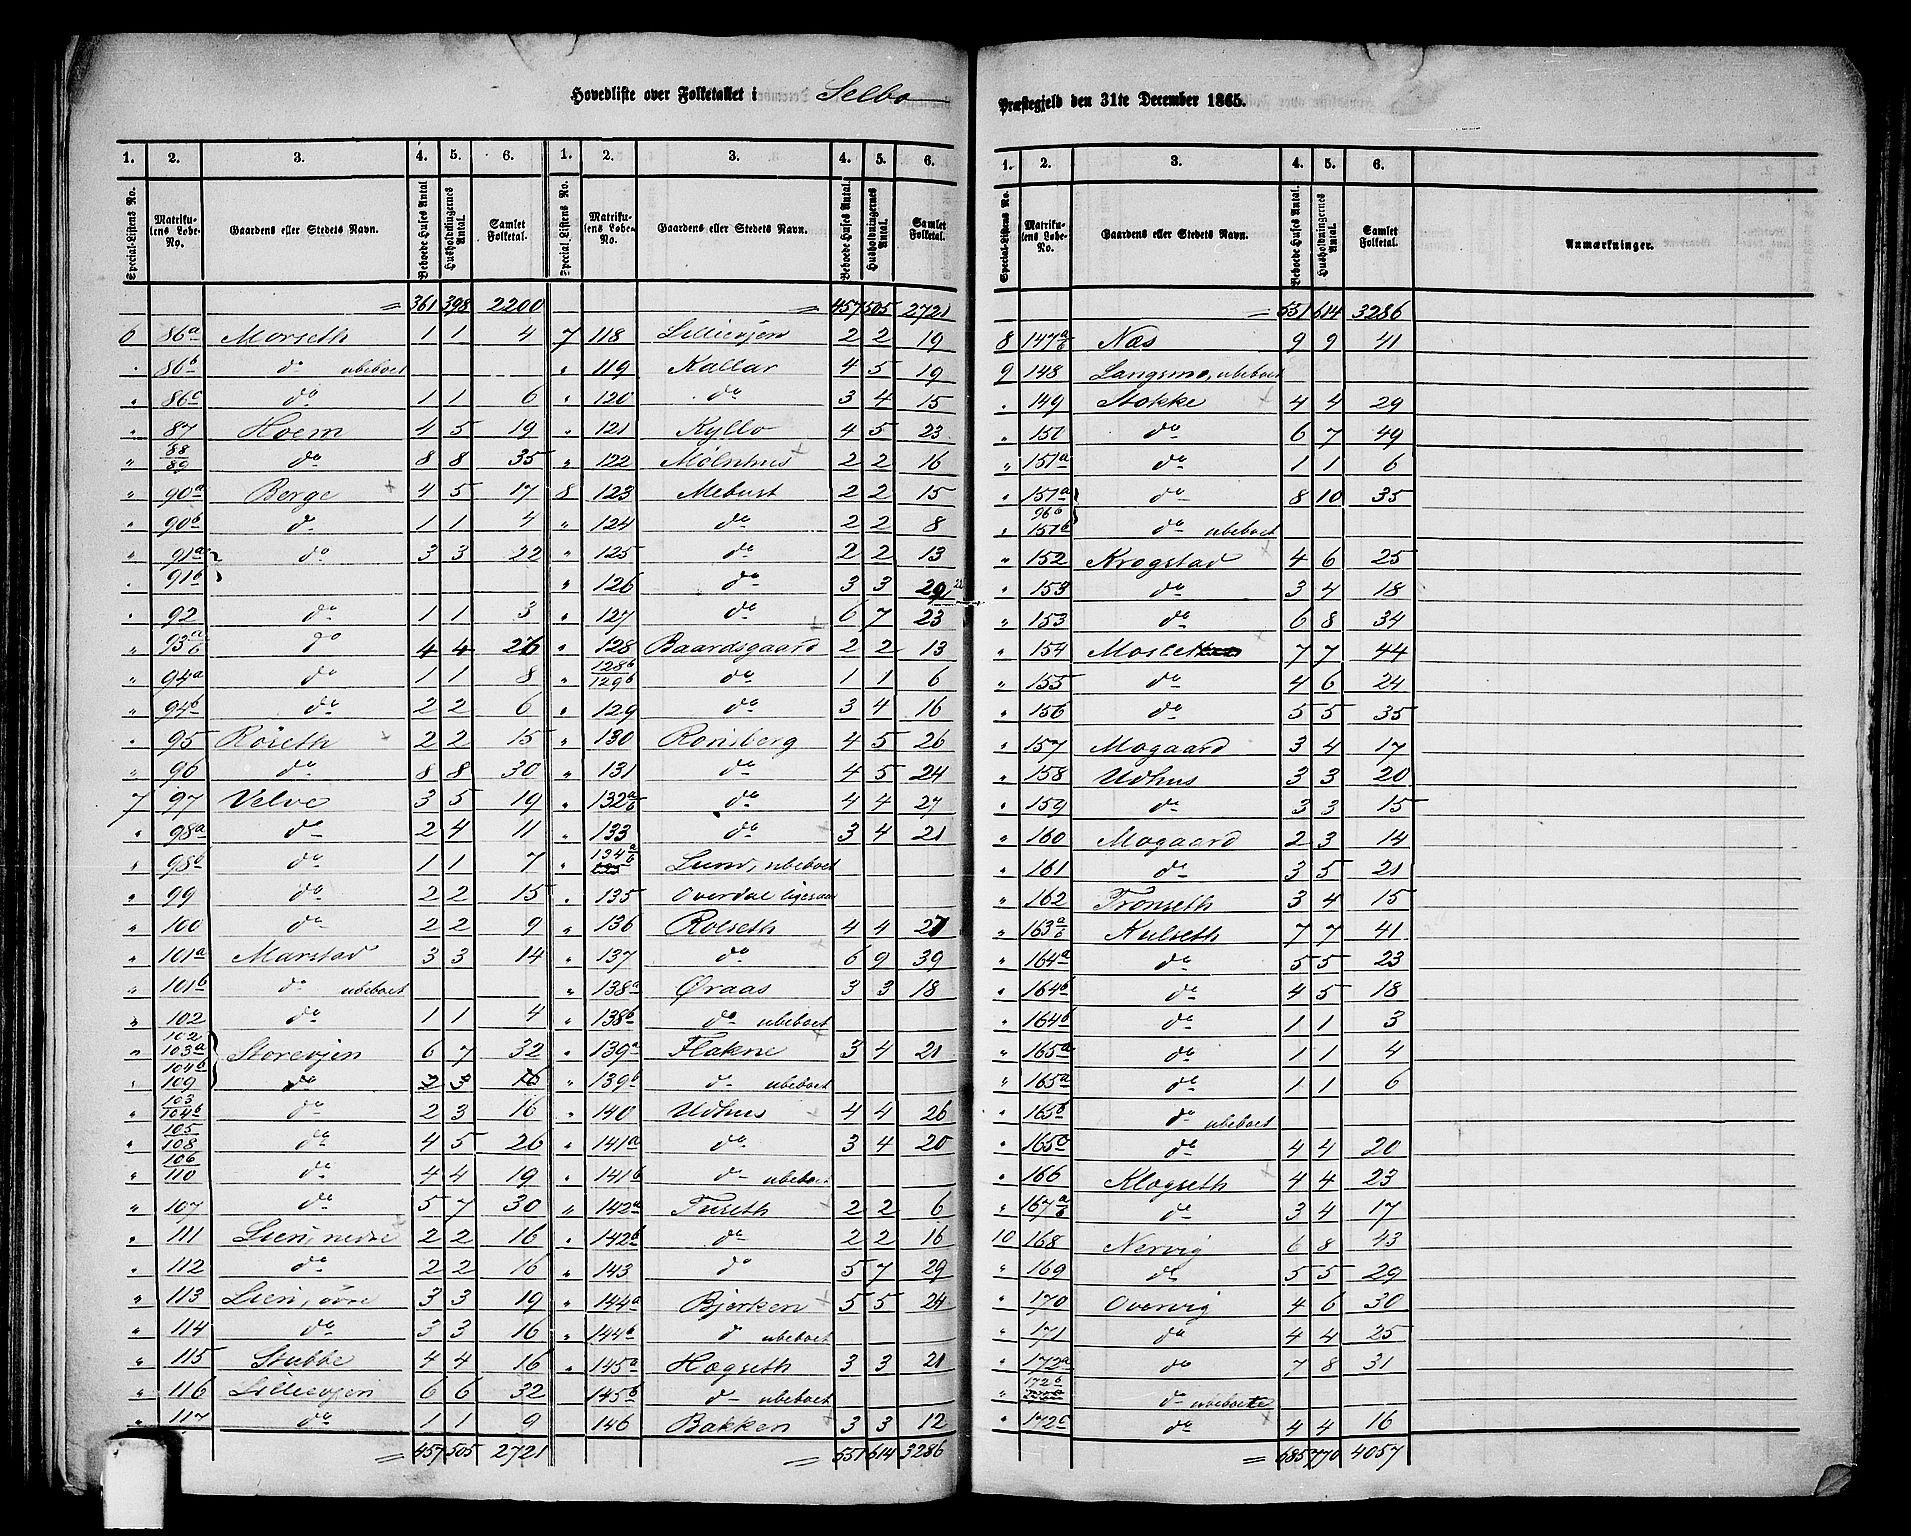 Hovedliste over Folketallet i Selbo
Præstegjeld den 31te December 1865.
1. 2. 3. 4. 5. 6. 1. 2. 3. 4. 5. 6.
Special-Listens No. Matrikulens Løbe-No. Gaardens eller Stedets Navn. Beboede Huses Antal. Husholdningernes Antal. Samlet Folketal. Special Listens No. Matrikulens Løbe-No. Gaardens eller Stedets Navn. Beboede Huses Antal. Husholdningernes Antal. Samlet Folketal.
= 361 398 2200 = 457 505 2721
6 86a Morseth 1 1 4 7 118 Lillevjen 2 2 19
" 86b do ubeboet " 119 Kallar 4 5 19
" 86c do 1 1 6 " 120 do 3 4 15
" 87 Hoem 4 5 19 " 121 Kyllo 4 5 23
" 88/89 do 8 8 35 " 122 Mølnhus 2 2 16
" 90a Berge 4 5 17 8 123 Mebust 2 2 15
" 90b do 1 1 4 " 124 do 2 2 8
" 91a do 3 3 22 " 125 do 2 2 13
" 91b " 126 do 3 3 29
" 92 do 1 1 3 " 127 do 6 7 23
" 93a/b do 4 4 26 " 128 Baardsgaard 2 2 13
" 94a do 1 1 8 " 128b/129b do 1 1 6
" 94b do 2 2 6 " 129 do 3 4 16
" 95 Röseth 2 2 15 " 130 Ronsberg 4 5 26
" 96 do 8 8 30 " 131 do 4 5 24
7 97 Velve 3 5 19 " 132a/b do 4 4 27
" 98a do 2 4 11 " 133 do 3 4 21
" 98b do 1 1 7 " 134a/b Lund, ubeboet
" 99 do 2 2 15 " 135 Overdal ligesaa
" 100 do 2 2 9 " 136 Rolseth 4 4 27
" 101a Marstad 3 3 14 " 137 do 6 9 39
" 101b do ubeboet " 138a Øraas 3 3 18
" 102 do 1 1 4 " 138b do ubeboet
" 102/103a Storevjen 6 7 32 " 139a Flakne 3 4 21
" 104b/109 do 2 3 16 " 139b do ubeboet
" 103/104b do 2 3 16 " 140 Udhus 4 4 26
" 105/108 do 4 5 26 " 141a do 3 4 20
" 106/110 do 4 4 19 " 141b do ubeboet
" 107 do 5 7 30 " 142a Fuseth 2 2 6
" 111 Lien, nedre 2 2 16 " 142b do 2 2 16
" 112 do 2 2 16 " 143 do 5 7 29
" 113 Lien, øvre 3 3 19 " 144a Bjerken 5 5 24
" 114 do 3 3 16 " 144b do ubeboet
" 115 Stubbe 4 4 16 " 145a Hægseth 3 3 21
" 116 Lillevjen 6 6 32 145b do ubeboet
" 117 do 1 1 9 " 146 Bakken 3 3 12
= 457 505 2721 = 551 614 3286
1. 2. 3. 4. 5. 6.
Special-Listens No. Matrikulens Løbe-No. Gaardens eller Stedets Navn. Beboede Huses Antal. Husholdningernes Antal. Samlet Folketal. Anmærkninger.
= 551 614 3286
8 147a/b Næs 9 9 41
9 148 Langsmo, ubeboet
" 149 Stokke 4 4 29
" 150 do 6 7 49
" 151a do 1 1 6
" 151a do 8 10 35
" 96b/151b do ubeboet
" 152 Krogstad 4 6 25
" 153 do 3 4 18
" 153 do 6 8 34
" 154 Moslet 7 7 44
" 155 do 4 6 24
" 156 do 5 5 35
" 157 Mogaard 3 4 17
" 158 Udhus 3 3 20
" 159 do 3 3 15
" 160 Mogaard 2 3 14
" 161 do 3 5 21
" 162 Tronseth 3 4 15
" 163a/b Kulseth 7 7 41
" 164a do 5 5 23
" 164b do 4 5 18
" 164b do 1 1 3
" 165a do 1 1 4
" 165a do 1 1 6
" 165b do ubeboet
" 165a do 4 4 20
" 166 Klogseth 4 4 23
" 167a/b do 3 4 17
10 168 Nervig 6 8 43
" 169 do 5 5 29
" 170 Overvig 4 6 30
" 171 do 4 4 25
" 172a do 7 8 31
" 172b do ubeboete
" 172c do 4 4 16
= 685 770 4057